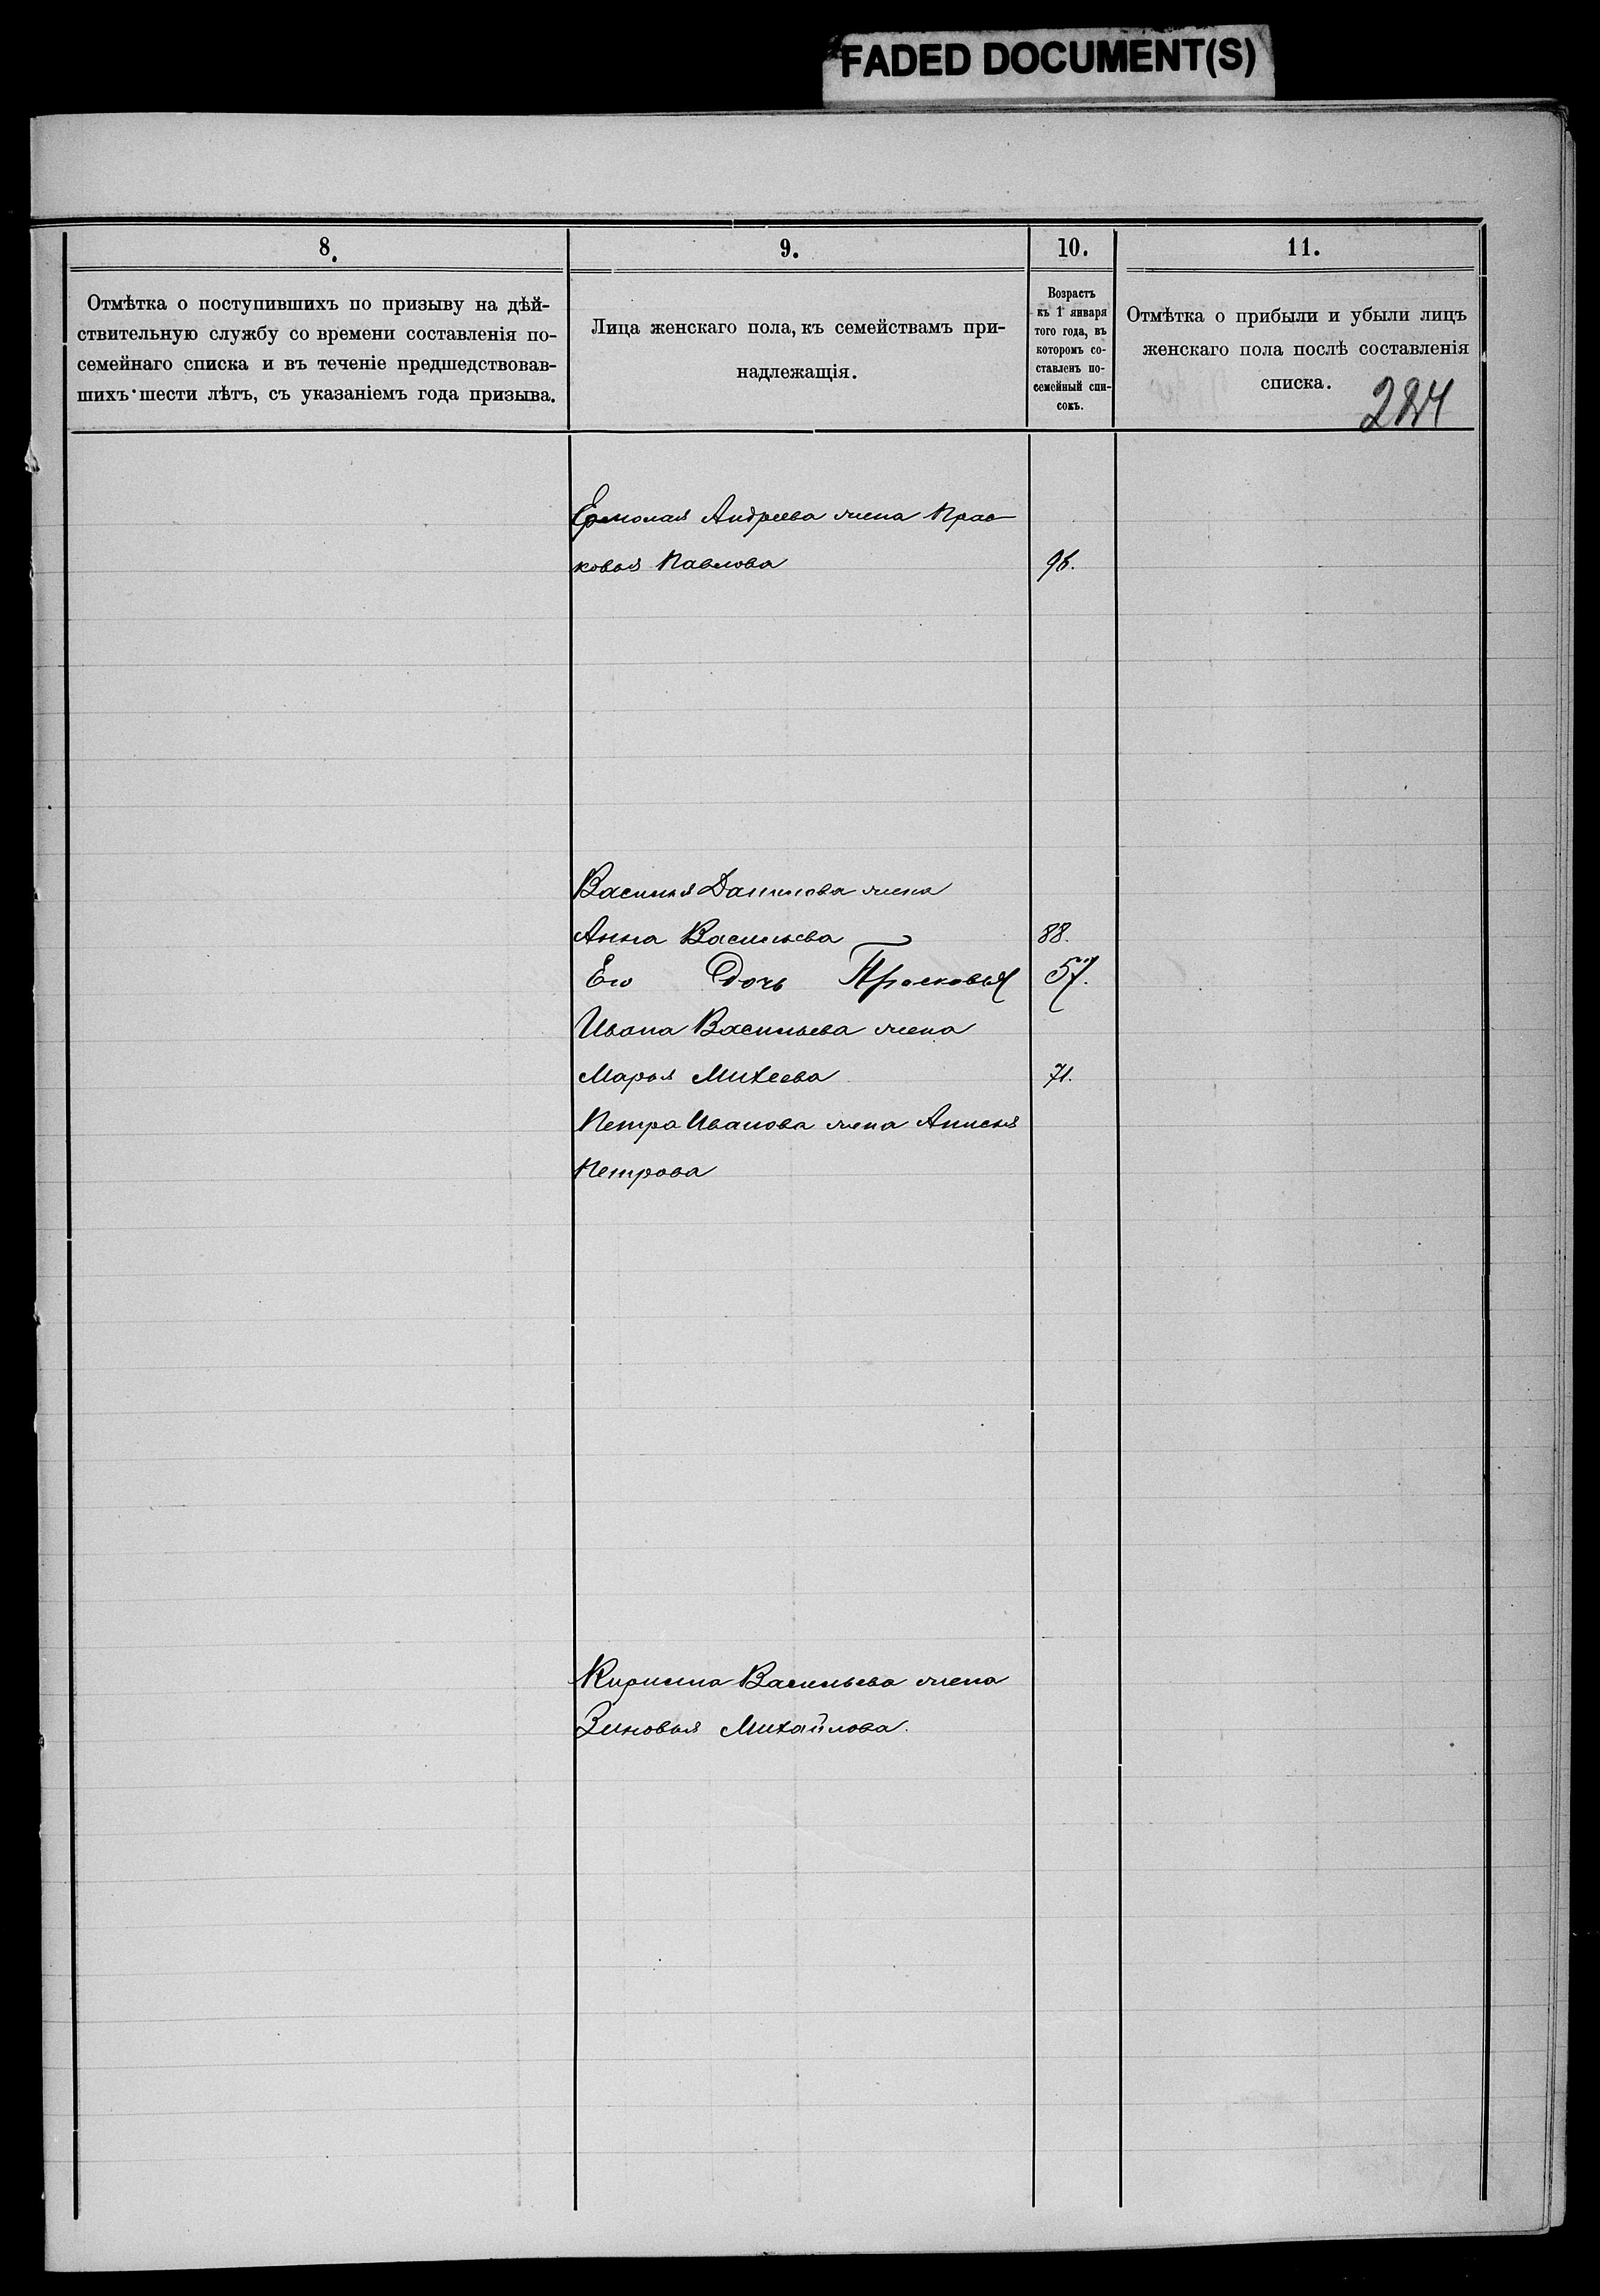 FADED DOCUMENT(S)
8.
9.
10.
11.
Отмѣтка о поступившихъ по призыву на дѣй-
ствительную службу со времени составленія по-
семейнаго списка и въ теченіе предшедствовав-
шихъ шести лѣтъ, съ указаніемъ года призыва.
Лица женскаго пола, къ семействамъ при-
надлежащія.
Возрастъ
къ 1 января
того года, въ
которомъ со-
ставленъ по-
семейный спи-
сокъ.
Отмѣтка о прибыли и убыли лицъ
женскаго пола послѣ составленія
списка.
Ермолая Андреева жена Прас-
ковья Павлова
Василья Данилова жена
Анна Васильева 88.
Его Дочь Просковья 57.
Ивана Васильева жена
Марья Михеева 71.
Петра Иванова жена Анисья
Петрова
Кирилла Васильева жена
Зиновья Михайлова.